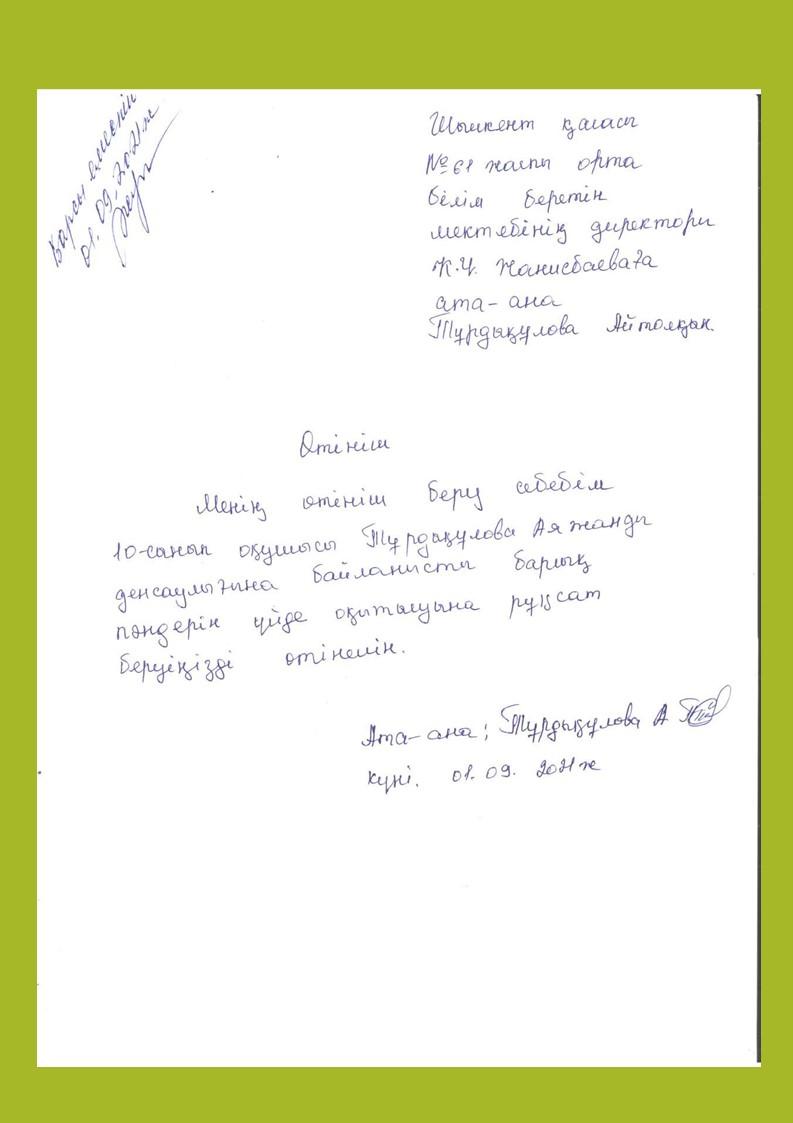 Қарсы емеспін
01.09.2021ж
Шымкент қаласы
№61 жалпы орта
білім беретін
мектебінің директоры
Ж.Ч. Жанисбаеваға
ата-ана
Тұрдықұлова Айтолқын.
Өтініш
Менің өтініш беру себебім
10-сынып оқушысы Тұрдықұлова Аяжанды
денсаулығына байланысты барлық
пәндерін үйде оқытылуына рұқсат
беруіңізді өтінемін.
Ата-ана; Тұрдықұлова А
күні. 01.09. 2021ж